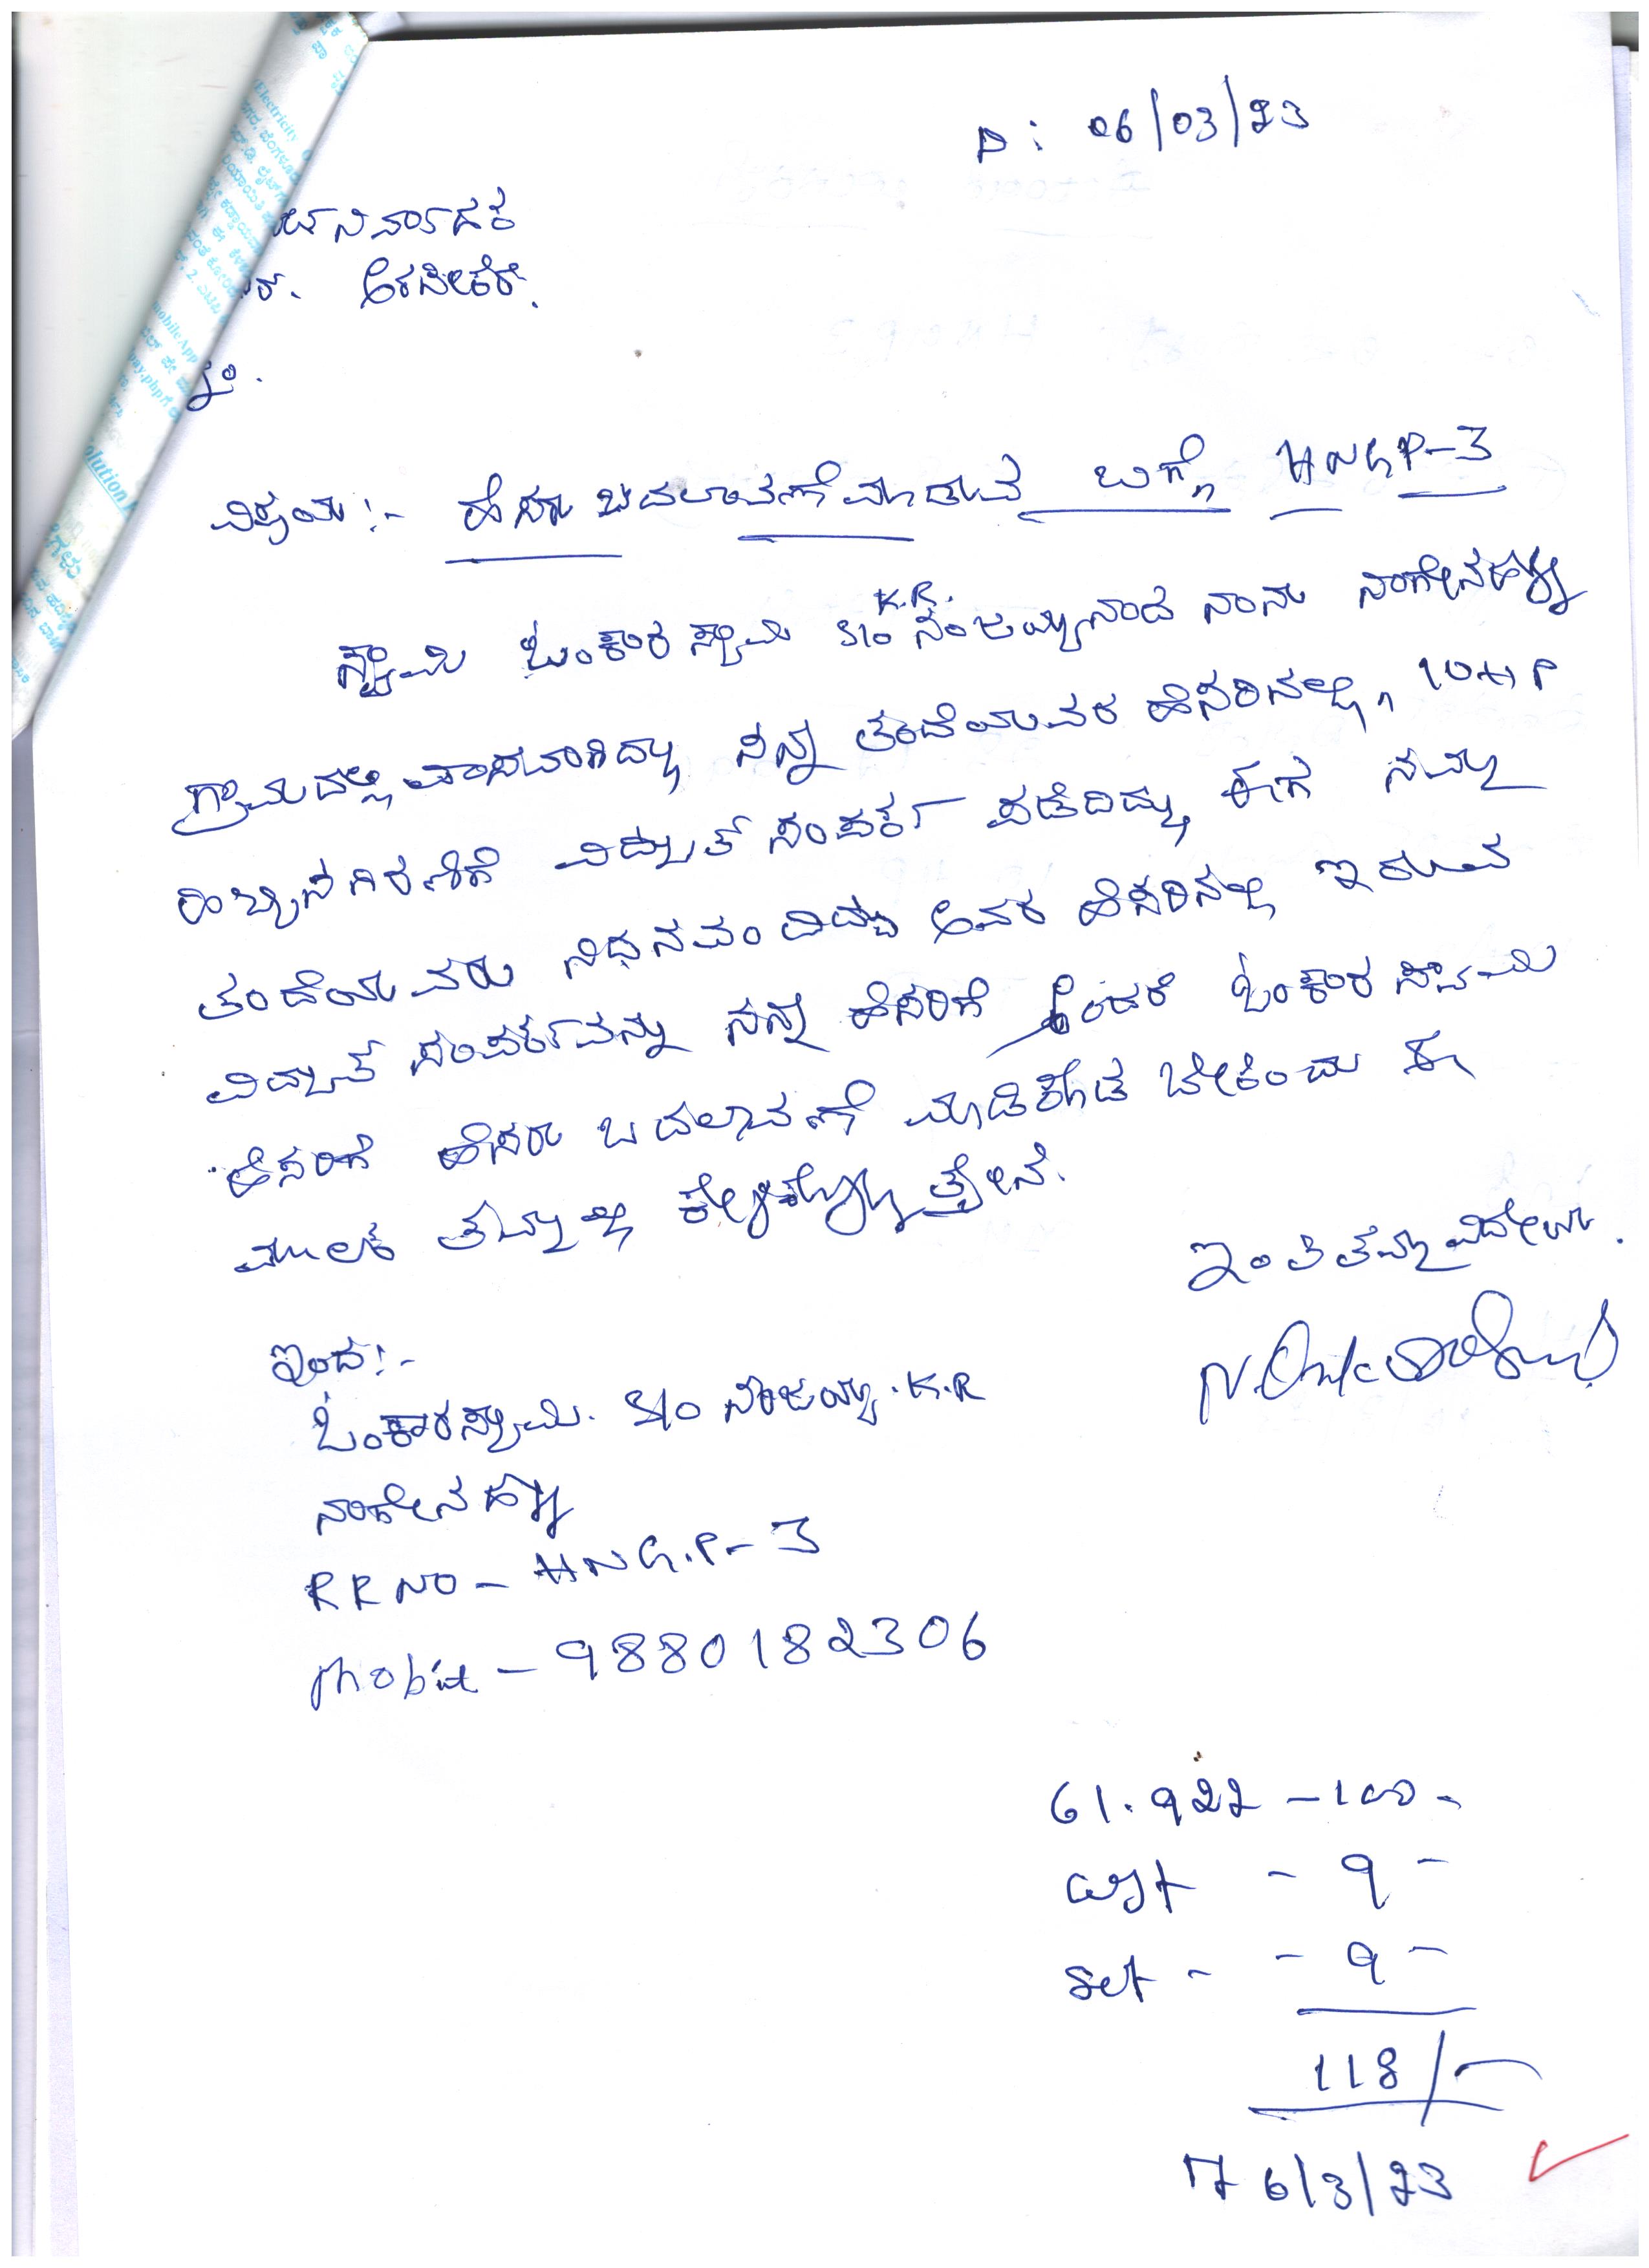 D: 06/03/23
ಅರಸೀಕೆರೆ.
ವಿಷಯ:- ಹೆಸರು ಬದಲಾವಣೆ ಮಾಡುವ ಬಗ್ಗೆ HNGP-3
K.R.
ಸ್ವಾಮಿ ಓಂಕಾರ ಸ್ವಾಮಿ S/o ನಂಜಯ್ಯನಾದ ನಾನು ನಾಗೇನಹಳ್ಳಿ
ಗ್ರಾಮದಲ್ಲಿ ವಾಸವಾಗಿದ್ದು ನನ್ನ ತಂದೆಯವರ ಹೆಸರಿನಲ್ಲಿ, 10HP
ಹಿಟ್ಟಿನಗಿರಣಿಗೆ ವಿದ್ಯುತ್ ಸಂಪರ್ಕ ಪಡೆದಿದ್ದು ಈಗ ನಮ್ಮ
ತಂದೆಯವರು ನಿಧನವಂದಿದ್ದು ಅವರ ಹೆಸರಿನಲ್ಲಿ ಇರುವ
ವಿದ್ಯುತ್ ಸಂಪರ್ಕವನ್ನು ನನ್ನ ಹೆಸರಿಗೆ ಅಂದರೆ ಓಂಕಾರ ಸ್ವಾಮಿ
ಹೆಸರಿಗೆ ಹೆಸರು ಬದಲಾವಣೆ ಮಾಡಿಕೊಡ ಬೇಕೆಂದು ಈ
ಮುಲಕ ತಮ್ಮಲ್ಲಿ ಕೇಳಿಕೊಳ್ಳುತ್ತೇನೆ.
ಇಂತಿ ತಮ್ಮ ವಿದೇಯ.
ಇಂದ:-
ಓಂಕಾರಸ್ವಾಮಿ. S/o ನಂಜಯ್ಯ.K.R
ನಾಗೇನಹಳ್ಳಿ
RR NO - HNG.P- 3
Mobile - 9880182306
61.922 - 100 -
CGST - 9 -
SGT - - 9 -
118/-
6/3/23